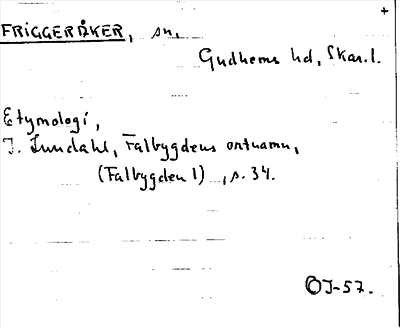 +
FRIGGERÅKER, sn,
Gudhems hd, Skar. l.
Etymologi,
I. Lundahl, Falbygdens ortnamn,
(Falbygden 1) , s. 34.
OJ-57.